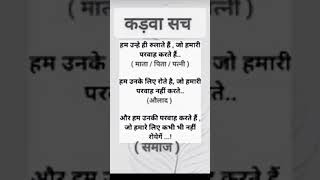 कड़वा सच
हम उन्हे ही रुलाते हैं , जो हमारी
परवाह करते हैं..
( माता / पिता / पत्नी )
हम उनके लिए रोते है, जो हमारी
परवाह नहीं करते..
(औलाद )
और हम उनकी परवाह करते हैं ,
जो हमारे लिए कभी भी नहीं
रोयेगें ...!
( समाज )